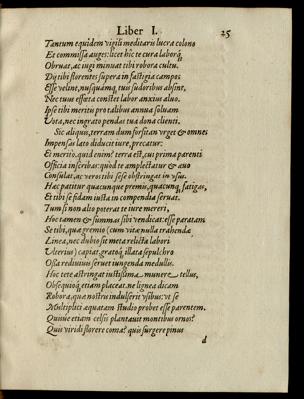 Liber I. 25
Tantum equidem vigili meditaris lucra colono
Et commissa auges: licet hic te cura laborq́
Obruat, ac iugi minuat tibi robora cultu.
Dij tibi florentes supera in fastigia campos
Esse velint, nusquámq; tuis sudoribus absint,
Nec tuus effœta constet labor anxius aluo.
Ipse tibi meritis pro talibus annua soluam
Vota, nec ingrato pendas tua dona clienti.
Sic aliquis, terram dum forsitan vrget & omnes
Impensas lato diducit iure, precatur:
Et meritò. quid enim? terra est, cui prima parenti
Officia inscribas: quòd te amplectatur & æuo
Consulat, ac veros tibi sese obstringat in vsus.
Hac patitur quacunque premis, quacunq; fatigas,
Et tibi se fidam iusta in compendia seruat.
Tum si non alio poterat te iure mereri,
Hoc tamen & summas sibi vendicat: esse paratam
Se tibi, quæ gremio (cum vitæ nulla trahenda
Linea, nec dubio sit meta relicta labori
Vlterius) capiat. gratoq́; illata sepulchro
Ossa rediuiuis seruet iungenda medullis.
Hoc te te astringat iustissima munere tellus,
Obsequioq́; etiam placeat. ne lignea dicam
Robora, quæ nostris indulserit vsibus: vt se
Multiplici æquatam studio probet esse parentem.
Quisue etiam celsis plantauit montibus ornos?
Quis viridi florere coma? quis surgere pinus
d